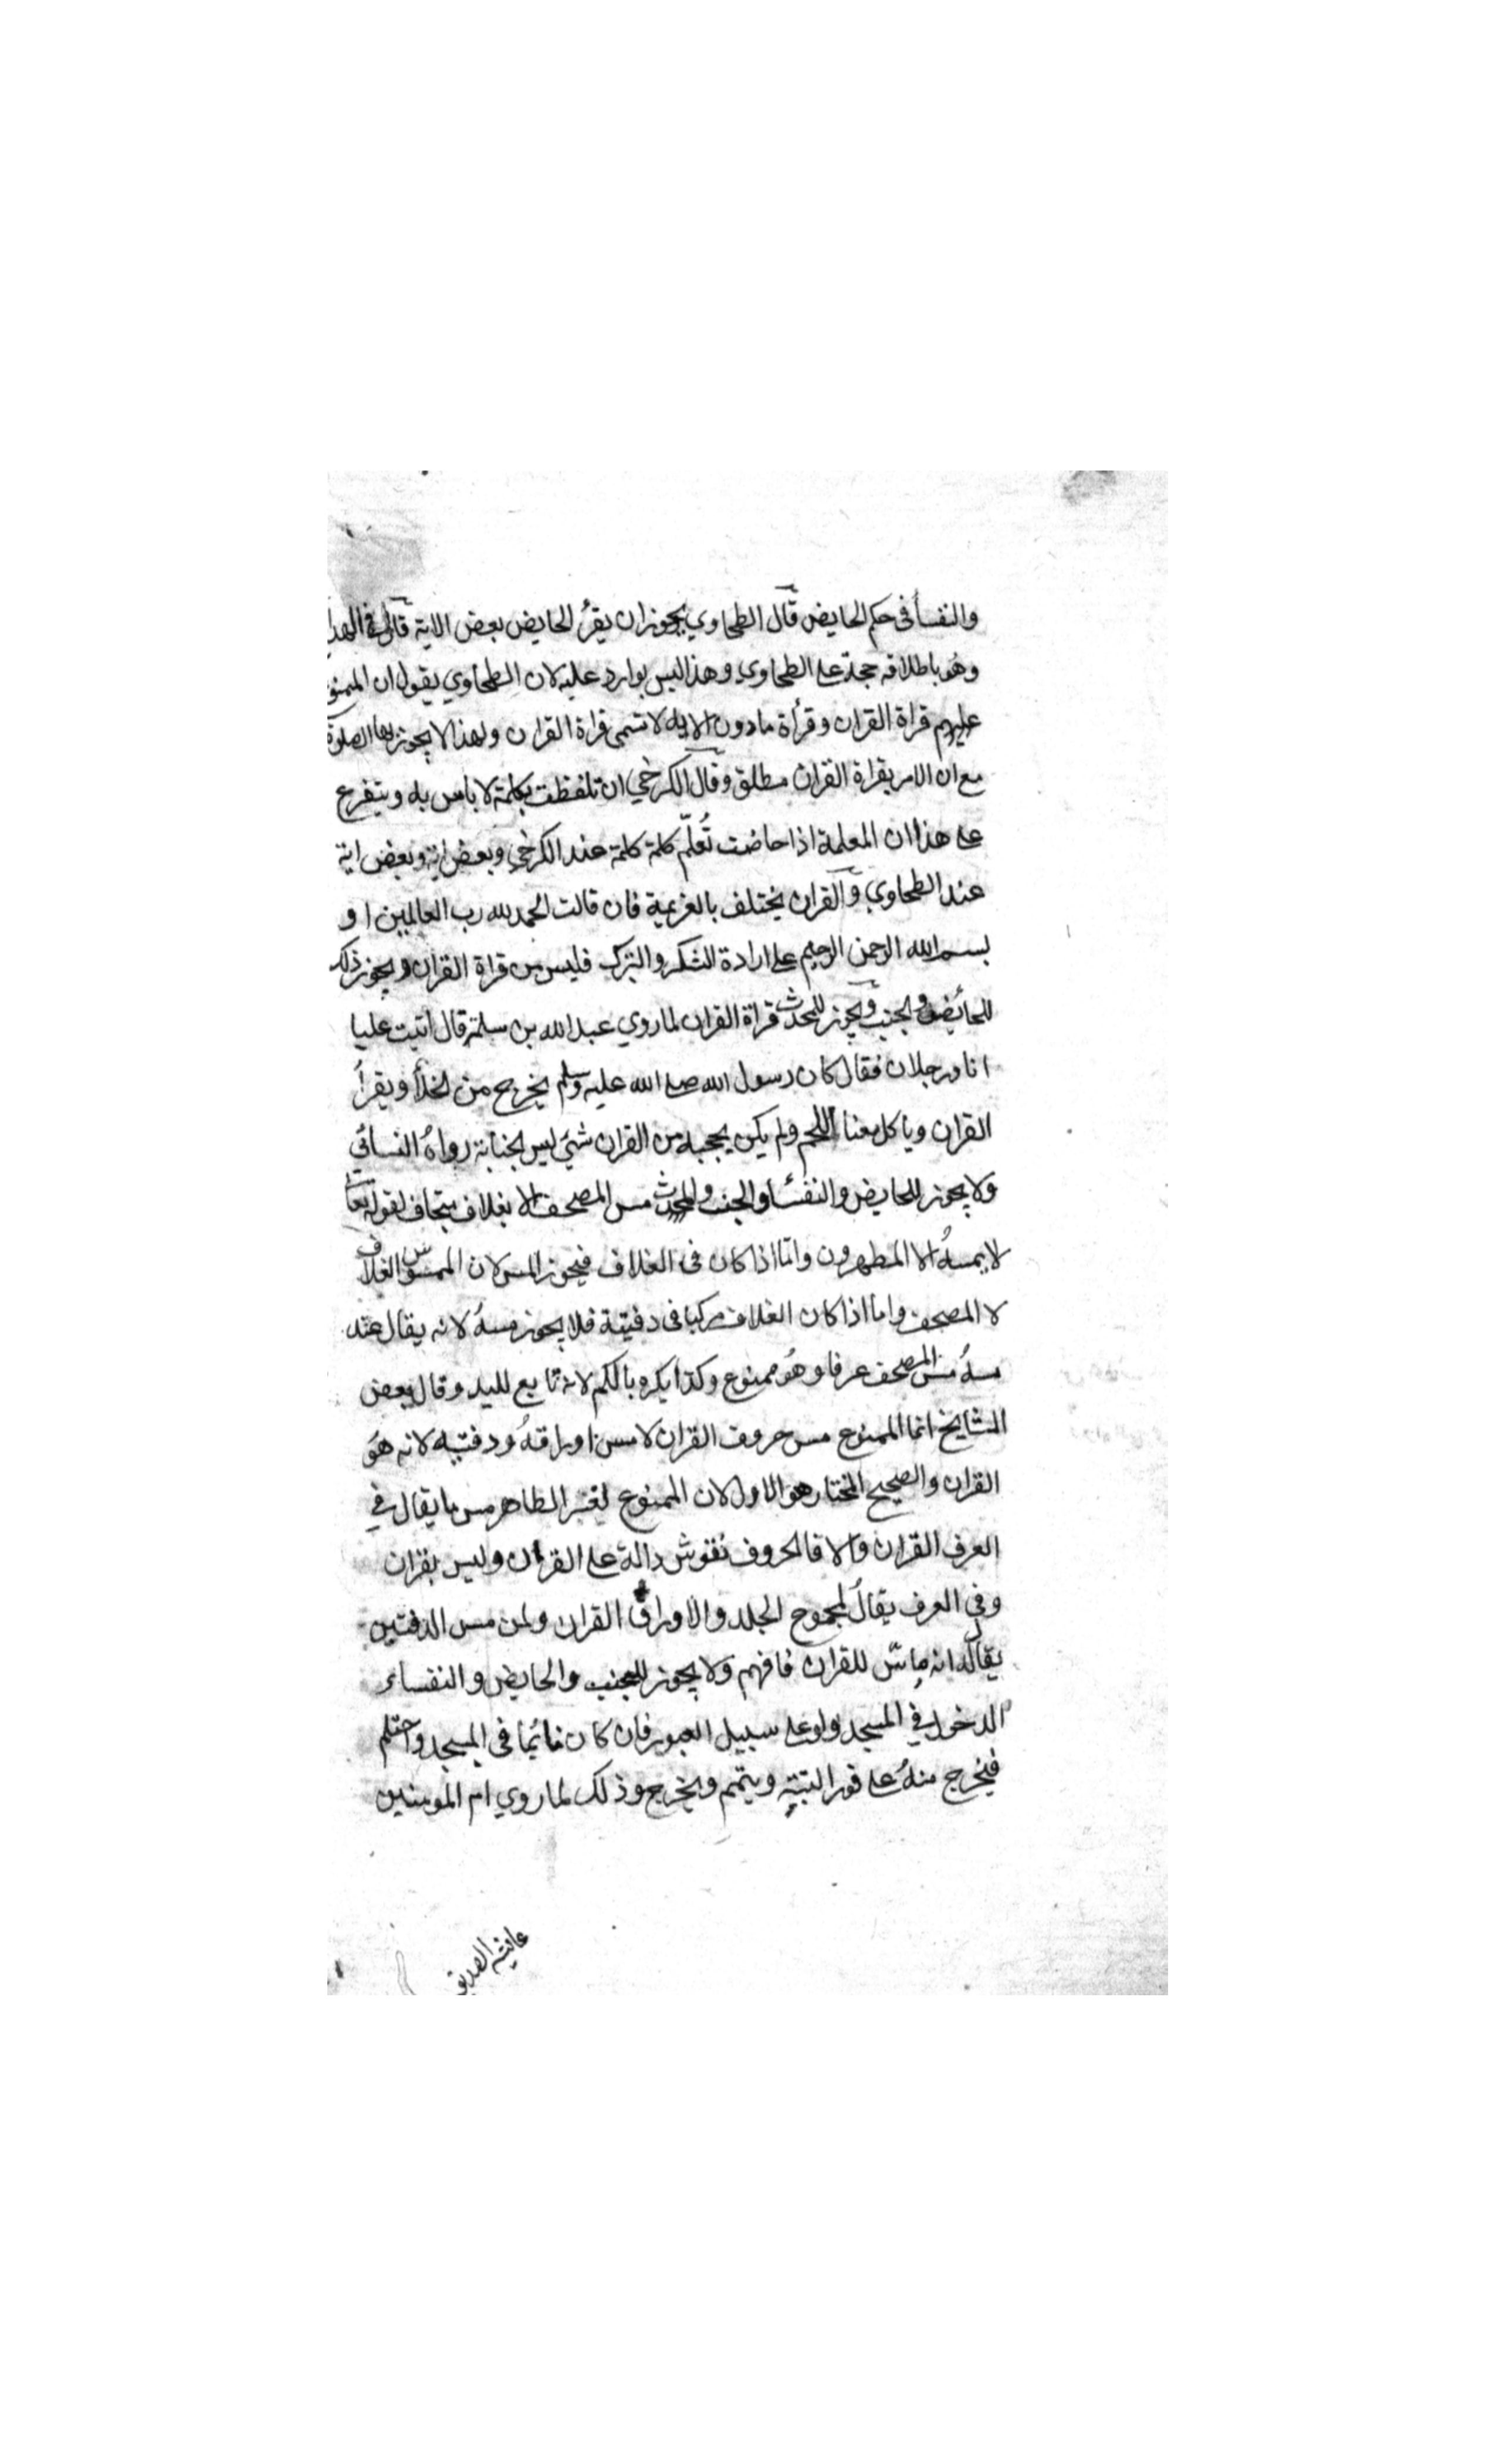 والنفسأ فى حكم الحايض قال الطحاوي يجوز ان يقرُ الحايض بعض الاية قال فى الهدا
وهُو باطلاقه حجة على الطحاوي وهذا ليس بوارد عليه لان الطحاوي يقول ان الممنو
عليهم قراة القران وقرأة مادون الايه لا تسمى قراة القران ولهذا لا يجوز بها الصلوة
مع ان الامر بقراة القران مطلق وقال الكرخي ان تلفظت بكلمة لا باس به ويتفرع
على هذا ان المعلمة اذا حاضت تُعلّم كلمة كلمة عند الكرخي وبعض اية وبعض اية
عند الطحاوي والقران يختلف بالعزيمة فان قالت الحمد لله رب العالمين او
بسم الله الرحمن الرحيم على ارادة الشكر والتبرك فليس من قراة القران ويجوز ذلك
للحائض والجنب ويجوز للمحدث قراة القران لما روي عبد الله بن سلمة قال اتيت عليا
انا ورجلان فقال كان رسول الله صلى الله عليه وسلم يخرج من الخلأ ويقرأُ
القران وياكل معنا اللحم ولم يكن يحجبه من القران شئ ليس الجنابة رواهُ النسائي
ولا يجوز للحايض والنفسأ والجنب والمحدث مس المصحف الا بغلاف متجاف لقوله تعا
لا يمسهُ الا المطهرون وامّا اذا كان فى الغلاف فيجوز المس لان الممسوس الغلاف
لا المصحف واما اذا كان الغلاف مركبا فى دفيتة فلا يجوز مسهُ لانه يقال عند
مسهُ مس المصحف عرفا وهُو ممنوع وكذا يكره بالكم لانه تابع لليد وقال بعض
المشايخ انما الممنوع مس حروف القران لا مس اوراقهُ ودفتيه لانه هوَ
القران والصحيح المختار هو الاول لان الممنوع لغير الطاهر مس ما يقال في
العرف القران والا فالحروف نقوش دالة على القران وليس بقران
وفى العرف يقالُ لمجموع الجلد والاوراق القران ولمن مس الدفتين
يقال انه ماسّ للقران فافهم ولا يجوز للجنب والحايض والنفساء
الدخول في المسجد ولو على سبيل العبور فان كان نائما فى المسجد واحتلم
فيخرج منهُ على فور التنبّه ويتمم ويخرج وذلك لما روي ام المومنين
عايشه الصديقه